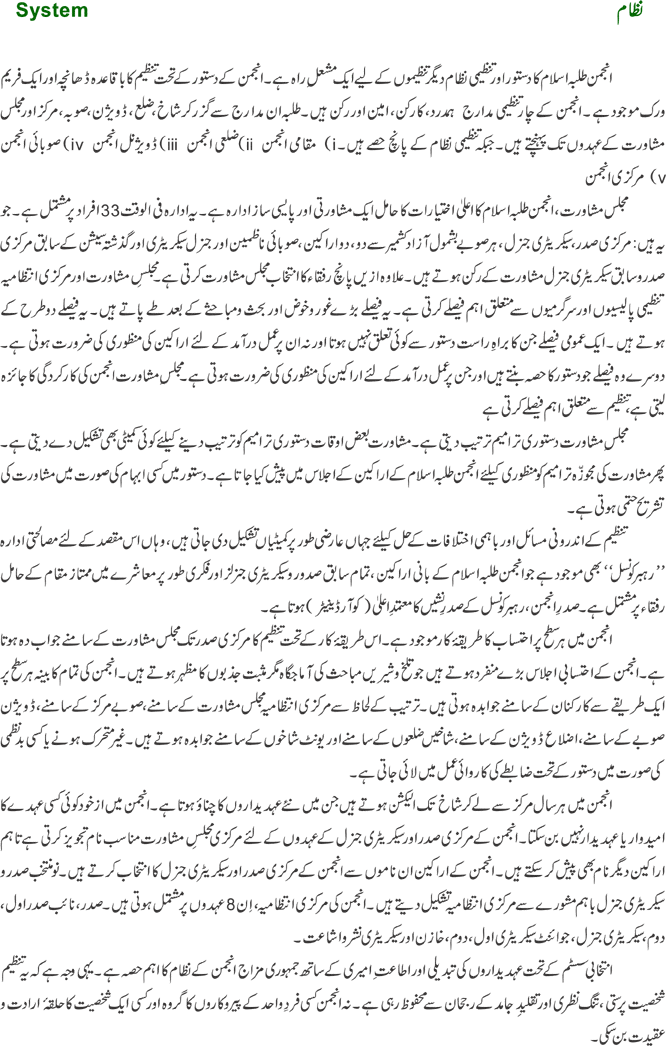 System نظام
انجمن طلبہ اسلام کا دستور اور تنظیمی نظام دیگر تنظیموں کے لیے ایک مشعل راہ ہے۔ انجمن کے دستور کے تحت تنظیم کا باقاعدہ ڈھانچہ اور ایک فریم
ورک موجود ہے۔ انجمن کے چار تنظیمی مدارج ہمدرد، کارکن، امین اور رکن ہیں۔ طلبہ ان مدارج سے گزر کر شاخ، ضلع، ڈویژن، صوبہ، مرکز اور مجلس
مشاورت کے عہدوں تک پہنچتے ہیں۔ جبکہ تنظیمی نظام کے پانچ حصے ہیں۔ i) مقامی انجمن ii) ضلعی انجمن iii) ڈویژنل انجمن iv) صوبائی انجمن
v) مرکزی انجمن
مجلس مشاورت، انجمن طلبہ اسلام کا اعلیٰ اختیارات کا حامل ایک مشاورتی اور پالیسی ساز ادارہ ہے۔ یہ ادارہ فی الوقت 33 افراد پر مشتمل ہے۔ جو
یہ ہیں: مرکزی صدر، سیکریٹری جنرل، ہر صوبے بشمول آزاد کشمیر سے دو، دو اراکین، صوبائی ناظمین اور جنرل سیکریٹری اور گذشتہ سیشن کے سابق مرکزی
صدر و سابق سیکریٹری جنرل مشاورت کے رکن ہوتے ہیں۔ علاوہ ازیں پانچ رفقاء کا انتخاب مجلس مشاورت کرتی ہے۔ مجلسِ مشاورت اور مرکزی انتظامیہ
تنظیمی پالیسیوں اور سرگرمیوں سے متعلق اہم فیصلے کرتی ہے۔ یہ فیصلے بڑے غور و خوض اور بحث و مباحثے کے بعد طے پاتے ہیں۔ یہ فیصلے دو طرح کے
ہوتے ہیں۔ ایک عمومی فیصلے جن کا براہِ راست دستور سے کوئی تعلق نہیں ہوتا اور نہ ان پر عمل درآمد کے لئے اراکین کی منظوری کی ضرورت ہوتی ہے۔
دوسرے وہ فیصلے جو دستور کا حصہ بنتے ہیں اور جن پر عمل درآمد کے لئے اراکین کی منظوری کی ضرورت ہوتی ہے۔ مجلس مشاورت انجمن کی کارکردگی کا جائزہ
لیتی ہے، تنظیم سے متعلق اہم فیصلے کرتی ہے
مجلس مشاورت دستوری ترامیم ترتیب دیتی ہے۔ مشاورت بعض اوقات دستوری ترامیم کو ترتیب دینے کیلئے کوئی کمیٹی بھی تشکیل دے دیتی ہے۔
پھر مشاورت کی مجوزّہ ترامیم کو منظوری کیلئے انجمن طلبہ اسلام کے اراکین کے اجلاس میں پیش کیا جاتا ہے۔ دستور میں کسی ابہام کی صورت میں مشاورت کی
تشریح حتمی ہوتی ہے۔
تنظیم کے اندرونی مسائل اور باہمی اختلافات کے حل کیلئے جہاں عارضی طور پر کمیٹیاں تشکیل دی جاتی ہیں، وہاں اس مقصد کے لئے مصالحتی ادارہ
’’رہبر کونسل‘‘ بھی موجود ہے جو انجمن طلبہ اسلام کے بانی اراکین، تمام سابق صدور و سیکریٹری جنرلز اور فکری طور پر معاشرے میں ممتاز مقام کے حامل
رفقاء پر مشتمل ہے۔ صدرِ انجمن، رہبر کونسل کے صدر نشیں کا معتمدِ اعلیٰ (کوآرڈینیٹر) ہوتا ہے۔
انجمن میں ہر سطح پر احتساب کا طریقۂ کار موجود ہے۔ اس طریقۂ کار کے تحت تنظیم کا مرکزی صدر تک مجلس مشاورت کے سامنے جواب دہ ہوتا
ہے۔ انجمن کے احتسابی اجلاس بڑے منفرد ہوتے ہیں جو تلخ و شیریں مباحث کی آماجگاہ مگر مثبت جذبوں کا مظہر ہوتے ہیں۔ انجمن کی تمام کابینہ ہر سطح پر
ایک طریقے سے کارکنان کے سامنے جوابدہ ہوتی ہیں۔ ترتیب کے لحاظ سے مرکزی انتظامیہ مجلس مشاورت کے سامنے، صوبے مرکز کے سامنے، ڈویژن
صوبے کے سامنے، اضلاع ڈویژن کے سامنے، شاخیں ضلعوں کے سامنے اور یونٹ شاخوں کے سامنے جوابدہ ہوتے ہیں۔ غیر متحرک ہونے یا کسی بدنظمی
کی صورت میں دستور کے تحت ضابطے کی کاروائی عمل میں لائی جاتی ہے۔
انجمن میں ہر سال مرکز سے لے کر شاخ تک الیکشن ہوتے ہیں جن میں نئے عہدیداروں کا چناؤ ہوتا ہے۔ انجمن میں از خود کوئی کسی عہدے کا
امیدوار یا عہدیدار نہیں بن سکتا۔ انجمن کے مرکزی صدر اور سیکریٹری جنرل کے عہدوں کے لئے مرکزی مجلسِ مشاورت مناسب نام تجویز کرتی ہے تاہم
اراکین دیگر نام بھی پیش کر سکتے ہیں۔ انجمن کے اراکین ان ناموں سے انجمن کے مرکزی صدر اور سیکریٹری جنرل کا انتخاب کرتے ہیں۔ نو منتخب صدر و
سیکریٹری جنرل باہم مشورے سے مرکزی انتظامیہ تشکیل دیتے ہیں۔ انجمن کی مرکزی انتظامیہ، اِن 8 عہدوں پر مشتمل ہوتی ہیں۔ صدر، نائب صدر اول،
دوم، سیکریٹری جنرل، جوائنٹ سیکریٹری اول، دوم، خازن اور سیکریٹری نشر و اشاعت۔
انتخابی سسٹم کے تحت عہدیداروں کی تبدیلی اور اطاعتِ امیری کے ساتھ جمہوری مزاج انجمن کے نظام کا اہم حصہ ہے۔ یہی وجہ ہے کہ یہ تنظیم
شخصیت پرستی، تنگ نظری اور تقلیدِ جامد کے رجحان سے محفوظ رہی ہے۔ نہ انجمن کسی فردِ واحد کے پیروکاروں کا گروہ اور کسی ایک شخصیت کا حلقۂ ارادت و
عقیدت بن سکی۔